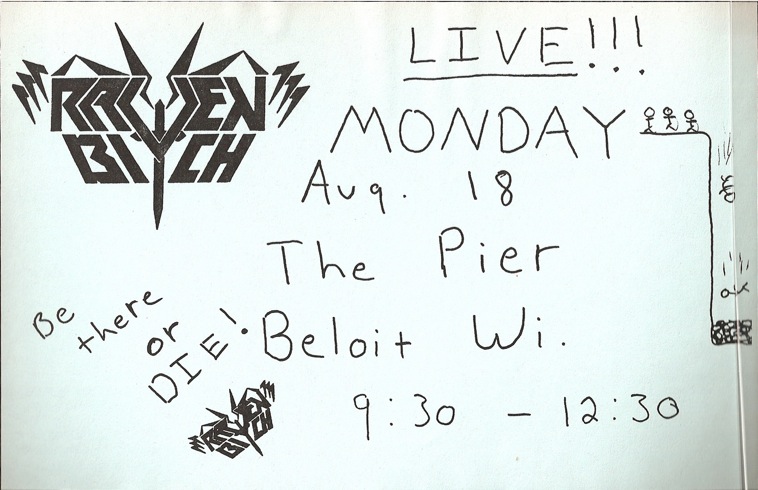 RAVEN
BITCH
LIVE!!!
MONDAY
Aug. 18
The Pier
Beloit Wi.
9:30 - 12:30
Be
there
or
DIE!
RAVEN
BITCH